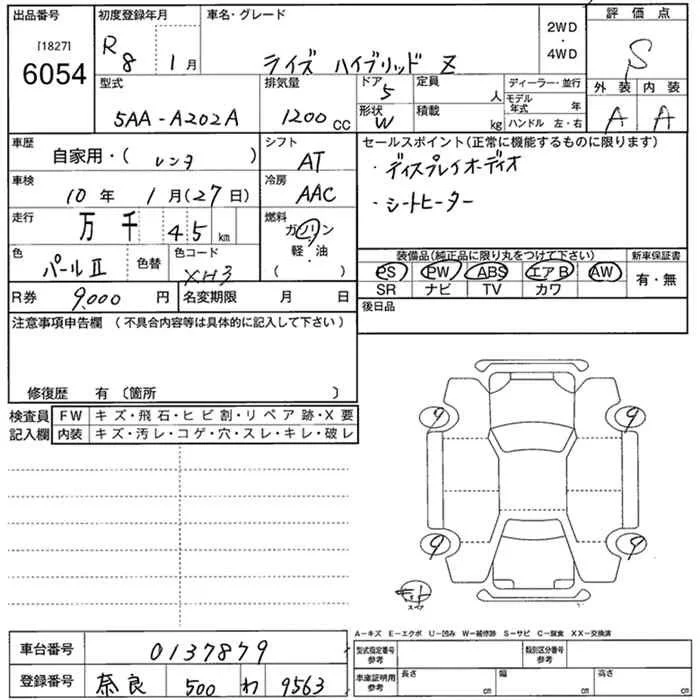 出品番号 初度登録年月 車名・グレード 2WD・4WD 評価点
[1827]
6054 R8 1月 ライズ ハイブリッド Z S
型式 排気量 ドア 5 定員 人 ディーラー・並行 外装 内装
5AA-A202A 1200cc 形状 W 積載 kg モデル年式 年 A A
ハンドル 左・右
車歴 自家用・( レンタ ) シフト AT セールスポイント(正常に機能するものに限ります)
・ディスプレイオーディオ
車検 10年 1月(27日) 冷房 AAC ・シートヒーター
走行 万 千 45 km 燃料 ガソリン 軽・油 ( )
色 パールⅡ 色替 色コード XH3 装備品(純正品に限り丸をつけて下さい) 新車保証書
PS PW ABS エアB AW 有・無
SR ナビ TV カワ
R券 9,000円 名変期限 月 日 後日品
注意事項申告欄 (不具合内容等は具体的に記入して下さい)
修復歴 有 〔箇所 〕
検査員記入欄 FW キズ・飛石・ヒビ割・リペア跡・X要
内装 キズ・汚レ・コゲ・穴・スレ・キレ・破レ
9 9
9 9
スペア
A-キズ E-エクボ U-凹み W-補修跡 S-サビ C-腐食 XX-交換済
車台番号 0137879 型式指定番号 参考 類別区分番号 参考
登録番号 奈良 500 わ 9563 車庫証明用 参考 長さ cm 幅 cm 高さ cm